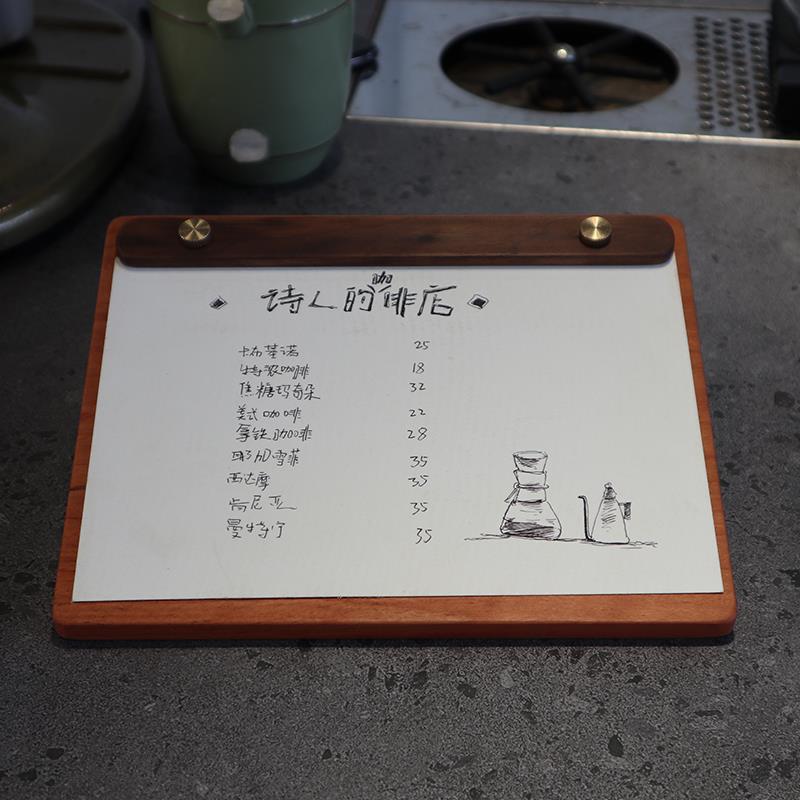 诗人的咖啡店
卡布基诺 25
特浓咖啡 18
焦糖玛奇朵 32
美式咖啡 22
拿铁咖啡 28
耶加雪菲 35
西达摩 35
肯尼亚 35
曼特宁 35